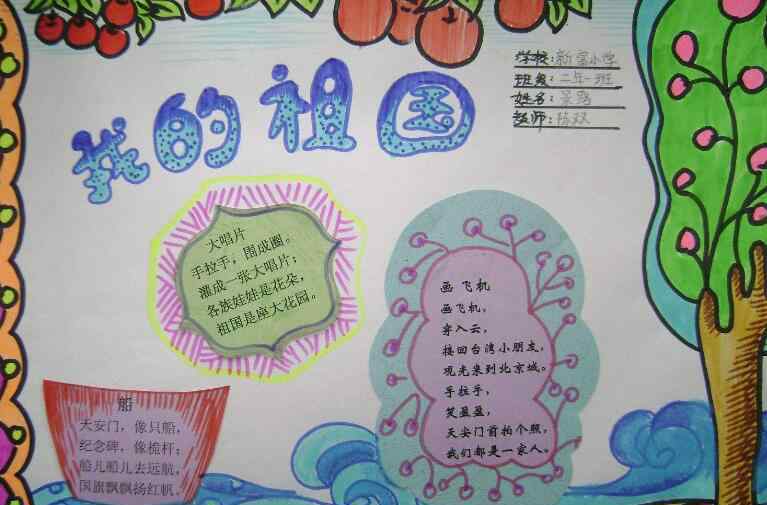 我的祖国
学校:新宫小学
班级:二年一班
姓名:景路
教师:陈双
大唱片
手拉手，围成圈。
灌成一张大唱片；
各族娃娃是花朵，
祖国是座大花园。
画飞机
画飞机，
穿入云，
接回台湾小朋友，
观光来到北京城。
手拉手，
笑盈盈，
天安门首拍个照，
我们都是一家人。
船
天安门，像只船，
纪念碑，像桅杆；
船儿船儿去远航，
国旗飘飘扬红帆。